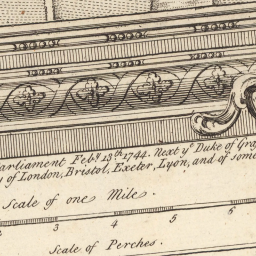 arliament Feb.y 13th. 1744. Next ye Duke of Gra
y of London, Bristol, Exeter, Lyon, and of some
Scale of one Mile.
3 4 5 6
Scale of Perches.